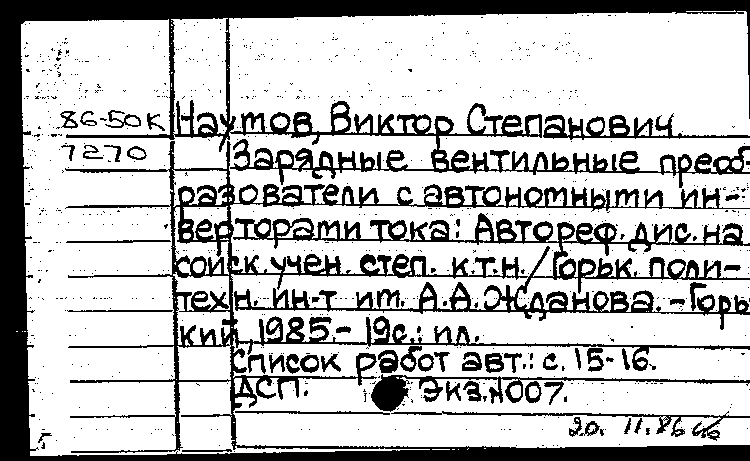 86-50К Наумов, Виктор Степанович.
7270 Зарядные вентильные преоб-
разователи с автономными ин-
верторами тока: Автореф. дис. на
соиск. учен. степ. к.т.н. / Горьк. поли-
техн. ин-т им. А.А.Жданова. - Горь
кий, 1985. - 19с.: ил.
Список работ авт.: с. 15-16.
ДСП. Экз.№007.
20. 11.86